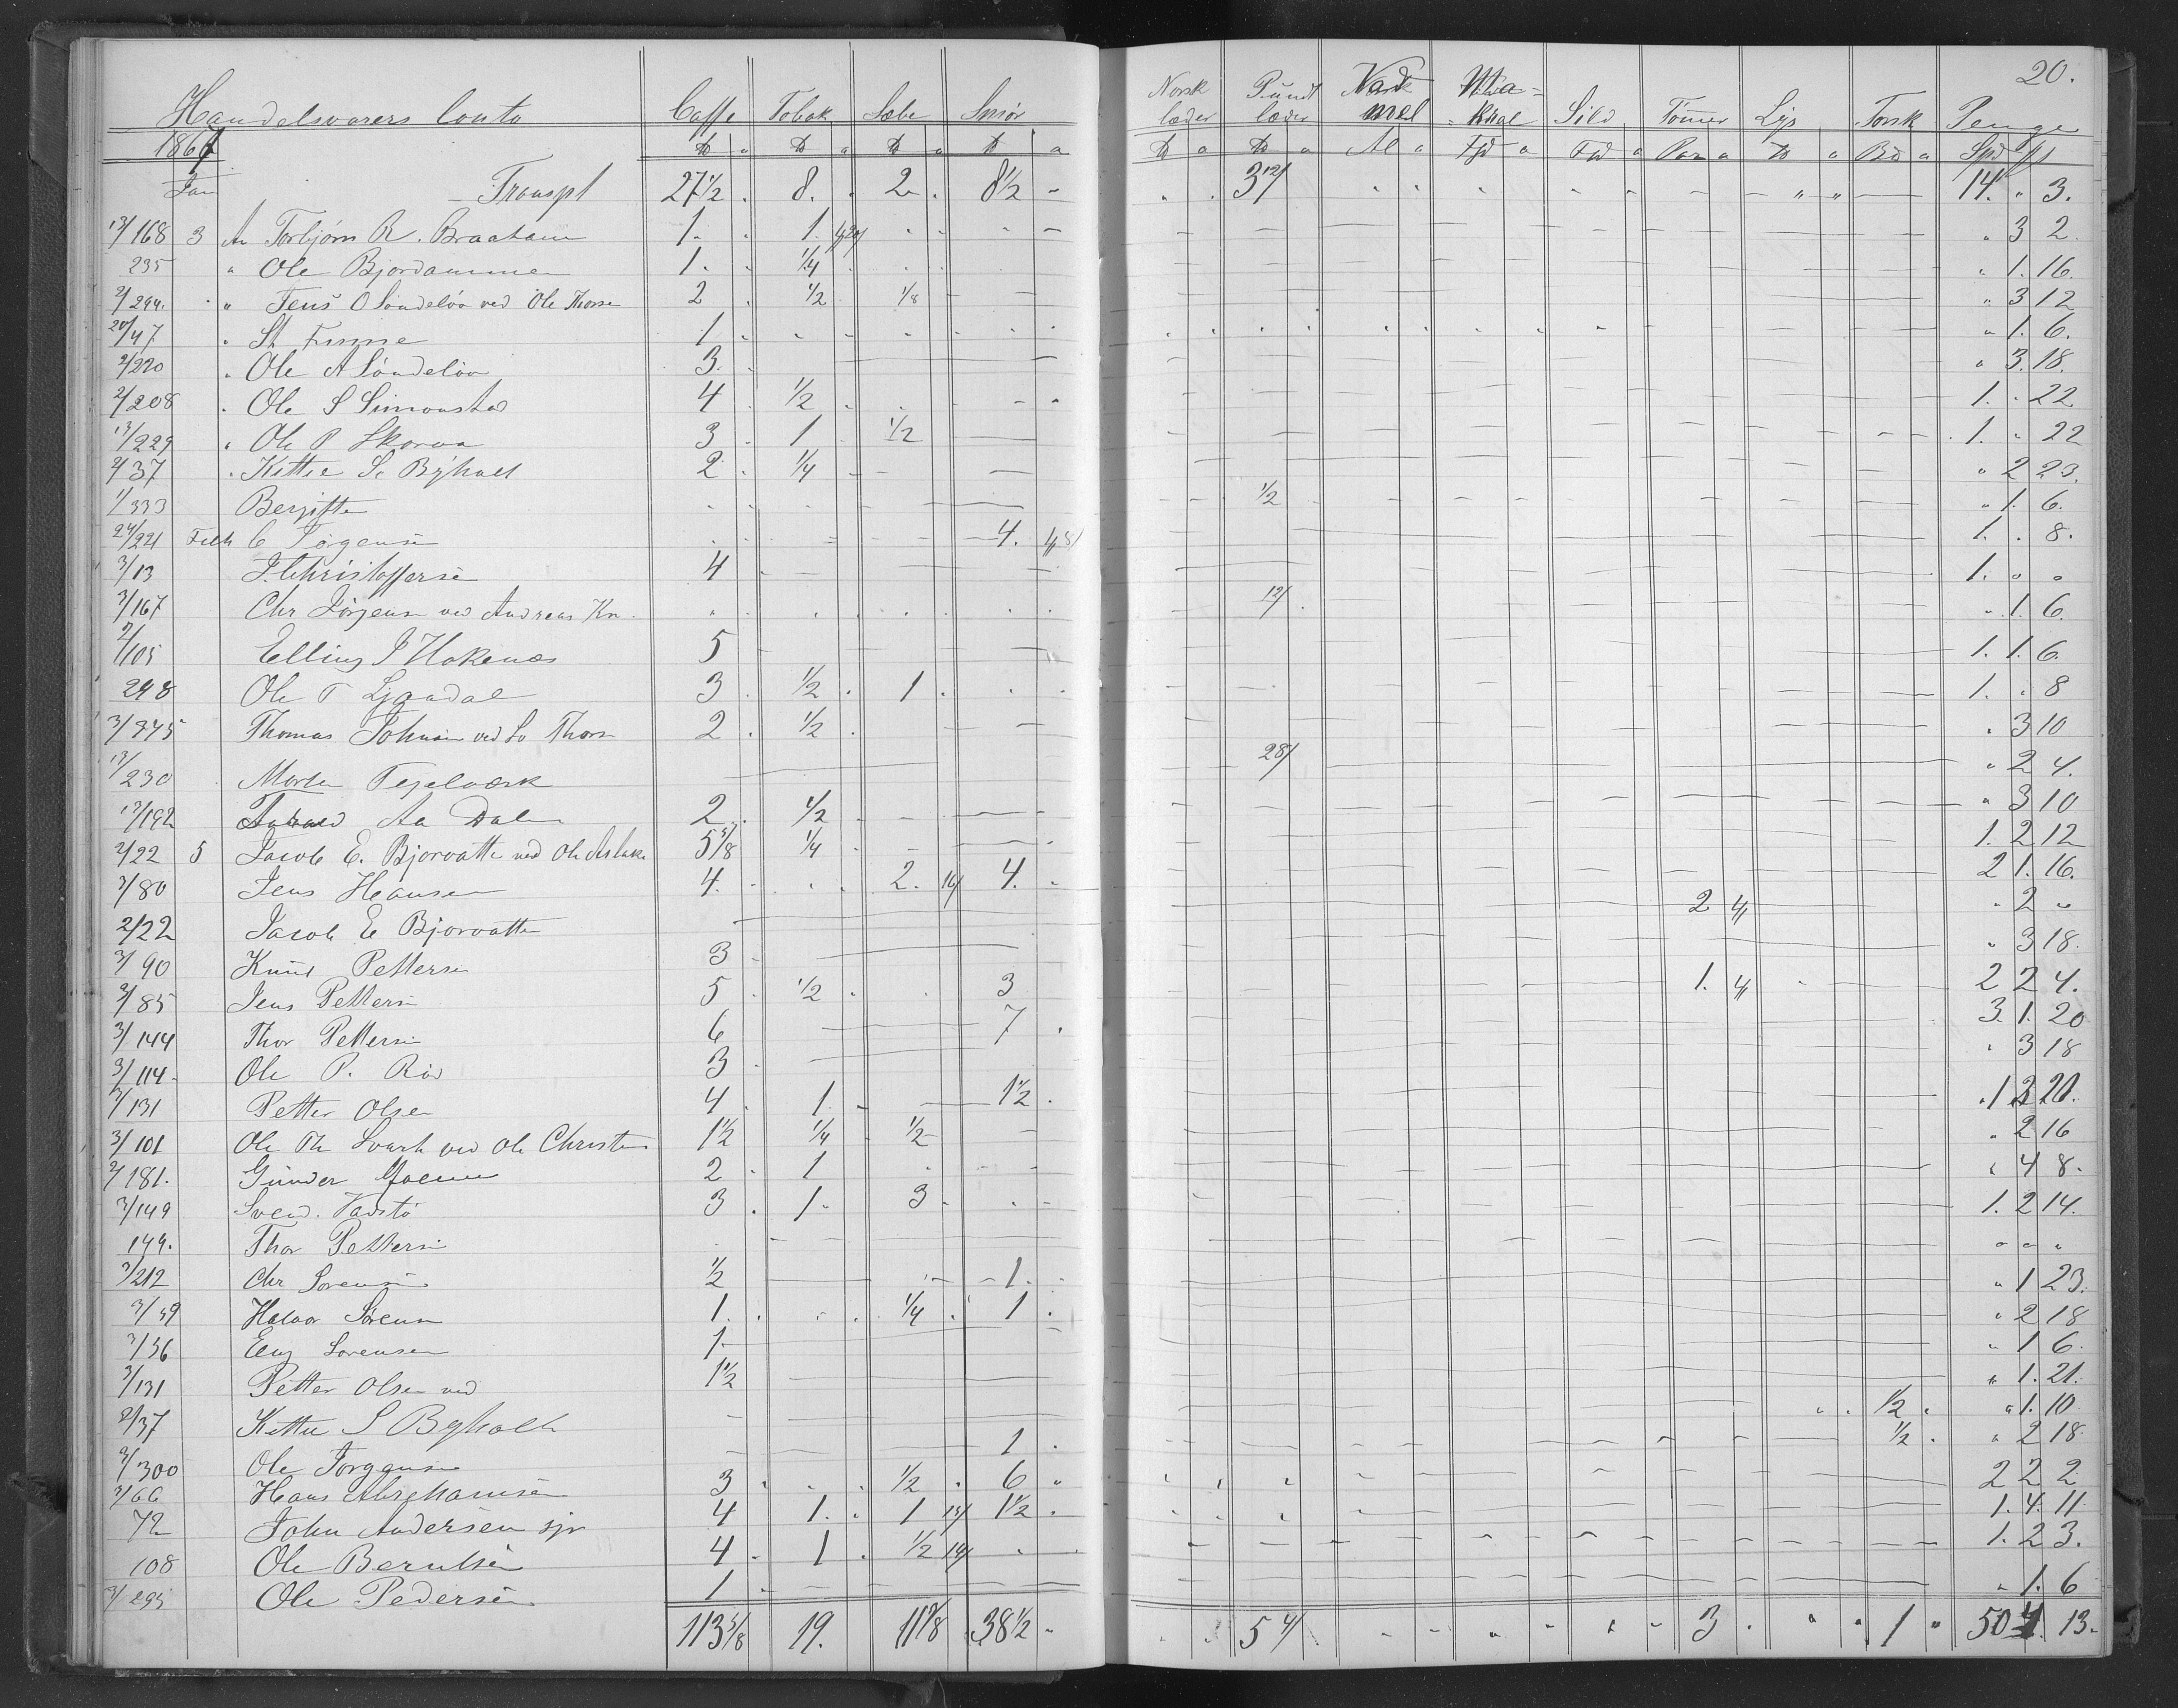 20.
Handelsvarers Conto Caffe Tobak Sæbe Smör Norsk læder Pundt læder Vad mel Sild Tönner Lys Torsk Penge
1867
Jan Transpt 27 1/2 8. 2 8 1/2 3 12/ 14. " 3.
13/168 3 An Torbjörn R. Braatane 1. 1. " 3 2.
235 " Ole Bjordammen 1. 1/4 " 1. 16.
2/294. " Jens O Söndelöv ved Ole Thorse 2 1/2 1/8 " 3 12
20/47 " St Finne 1 " 1. 6.
2/220 " Ole A Söndelöv 3. " 3. 18.
2/208 " Ole S Simonstad 4 1/2 1. " 22
13/229 " Ole P Skorva 3 1 1/2 1. " 22
2/37 " Kittil S. Byholt 2 1/4 " 2 23.
1/333 Bergitte 1/2 " 1. 6.
24/221 C Jörgensen 4. 1. . 8.
3/13 J. Christoffersen 4 1. " "
3/167 Chr Jörgensen ved Andreas Kn. 12/ " 1. 6.
2/105 Elling J Hokenæs 5 1. 1. 6.
248 Ole T Ljaadal 3 1/2 1 1. " 8
3/345 Thomas Johnsen ved So Thors 2 1/2 " 3 10
13/230 Morten Tegelværk 28/ " 2 4.
13/192 Aa Dale 2 1/2 " 3 10
2/22 5 Jacob E. Bjorvatten ved Ole Aslaks 5 5/8 1/4 1. 2 12
3/80 Jens Hansen 4. 2. 16/ 4. 2 1. 16.
2/22 Jacob E Bjorvatten 2 " 2 "
3/90 Knud Pettersen 3 " 3 18.
3/85 Jens Pettersen 5 1/2 3 1. 2 2 4.
3/144 Thor Pettersen 6 7 3. 1. 20
3/114 Ole P. Röd 3 " 3 18
3/131 Petter Olsen 4 1. 1 1/2 1 3 20.
3/101 Ole Th Svart ved Ole Christen 1 1/2 1/4 1/2 " 2 16
2/181. Gunder Moene 2 1 " 4 8.
3/149 Svend. Vadstö 3 1. 3 1. 2 14.
144. Thor Pettersen " " "
3/212 Chr Sorensen 1/2 1. " 1 23.
3/39 Halvor Sörensen 1. 1/4 1. " 2 18
3/36 Eng Sorensen 1 " 1 6.
3/131 Petter Olsen ved 1 1/2 " 1. 21.
2/37 Kittil S Byholt 1/2 " 1. 10.
3/300 Ole Jörgensen 1 1/2 " 2 18
3/66 Hans Abrahamsen 3 1/2 6 2 2 2
72 John Andersen sjr 4 1. 1 13/ 1 1/2 1. 4. 11
108 Ole Berntsen 4 1 1/2 14/ 1. 2 3.
3/295 Ole Pedersen 1 " 1. 6
113 5/8 19. 11 3/8 38 1/2 5 4/ 3 1 50 4 13.